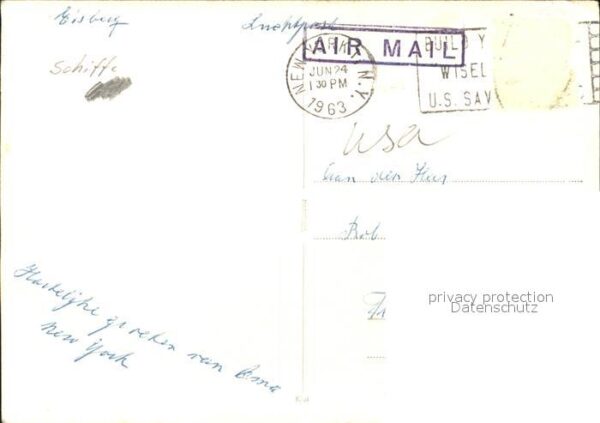 Eisberg
Luchtpost
Schiffe
AIR MAIL
NEW YORK, N.Y.
JUN 24
1 30 PM
1963
BUILD Y
WISEL
U.S. SAV
USA
aan den Heer
Rob
privacy protection
Datenschutz
Hartelijke groeten van Oma
New York